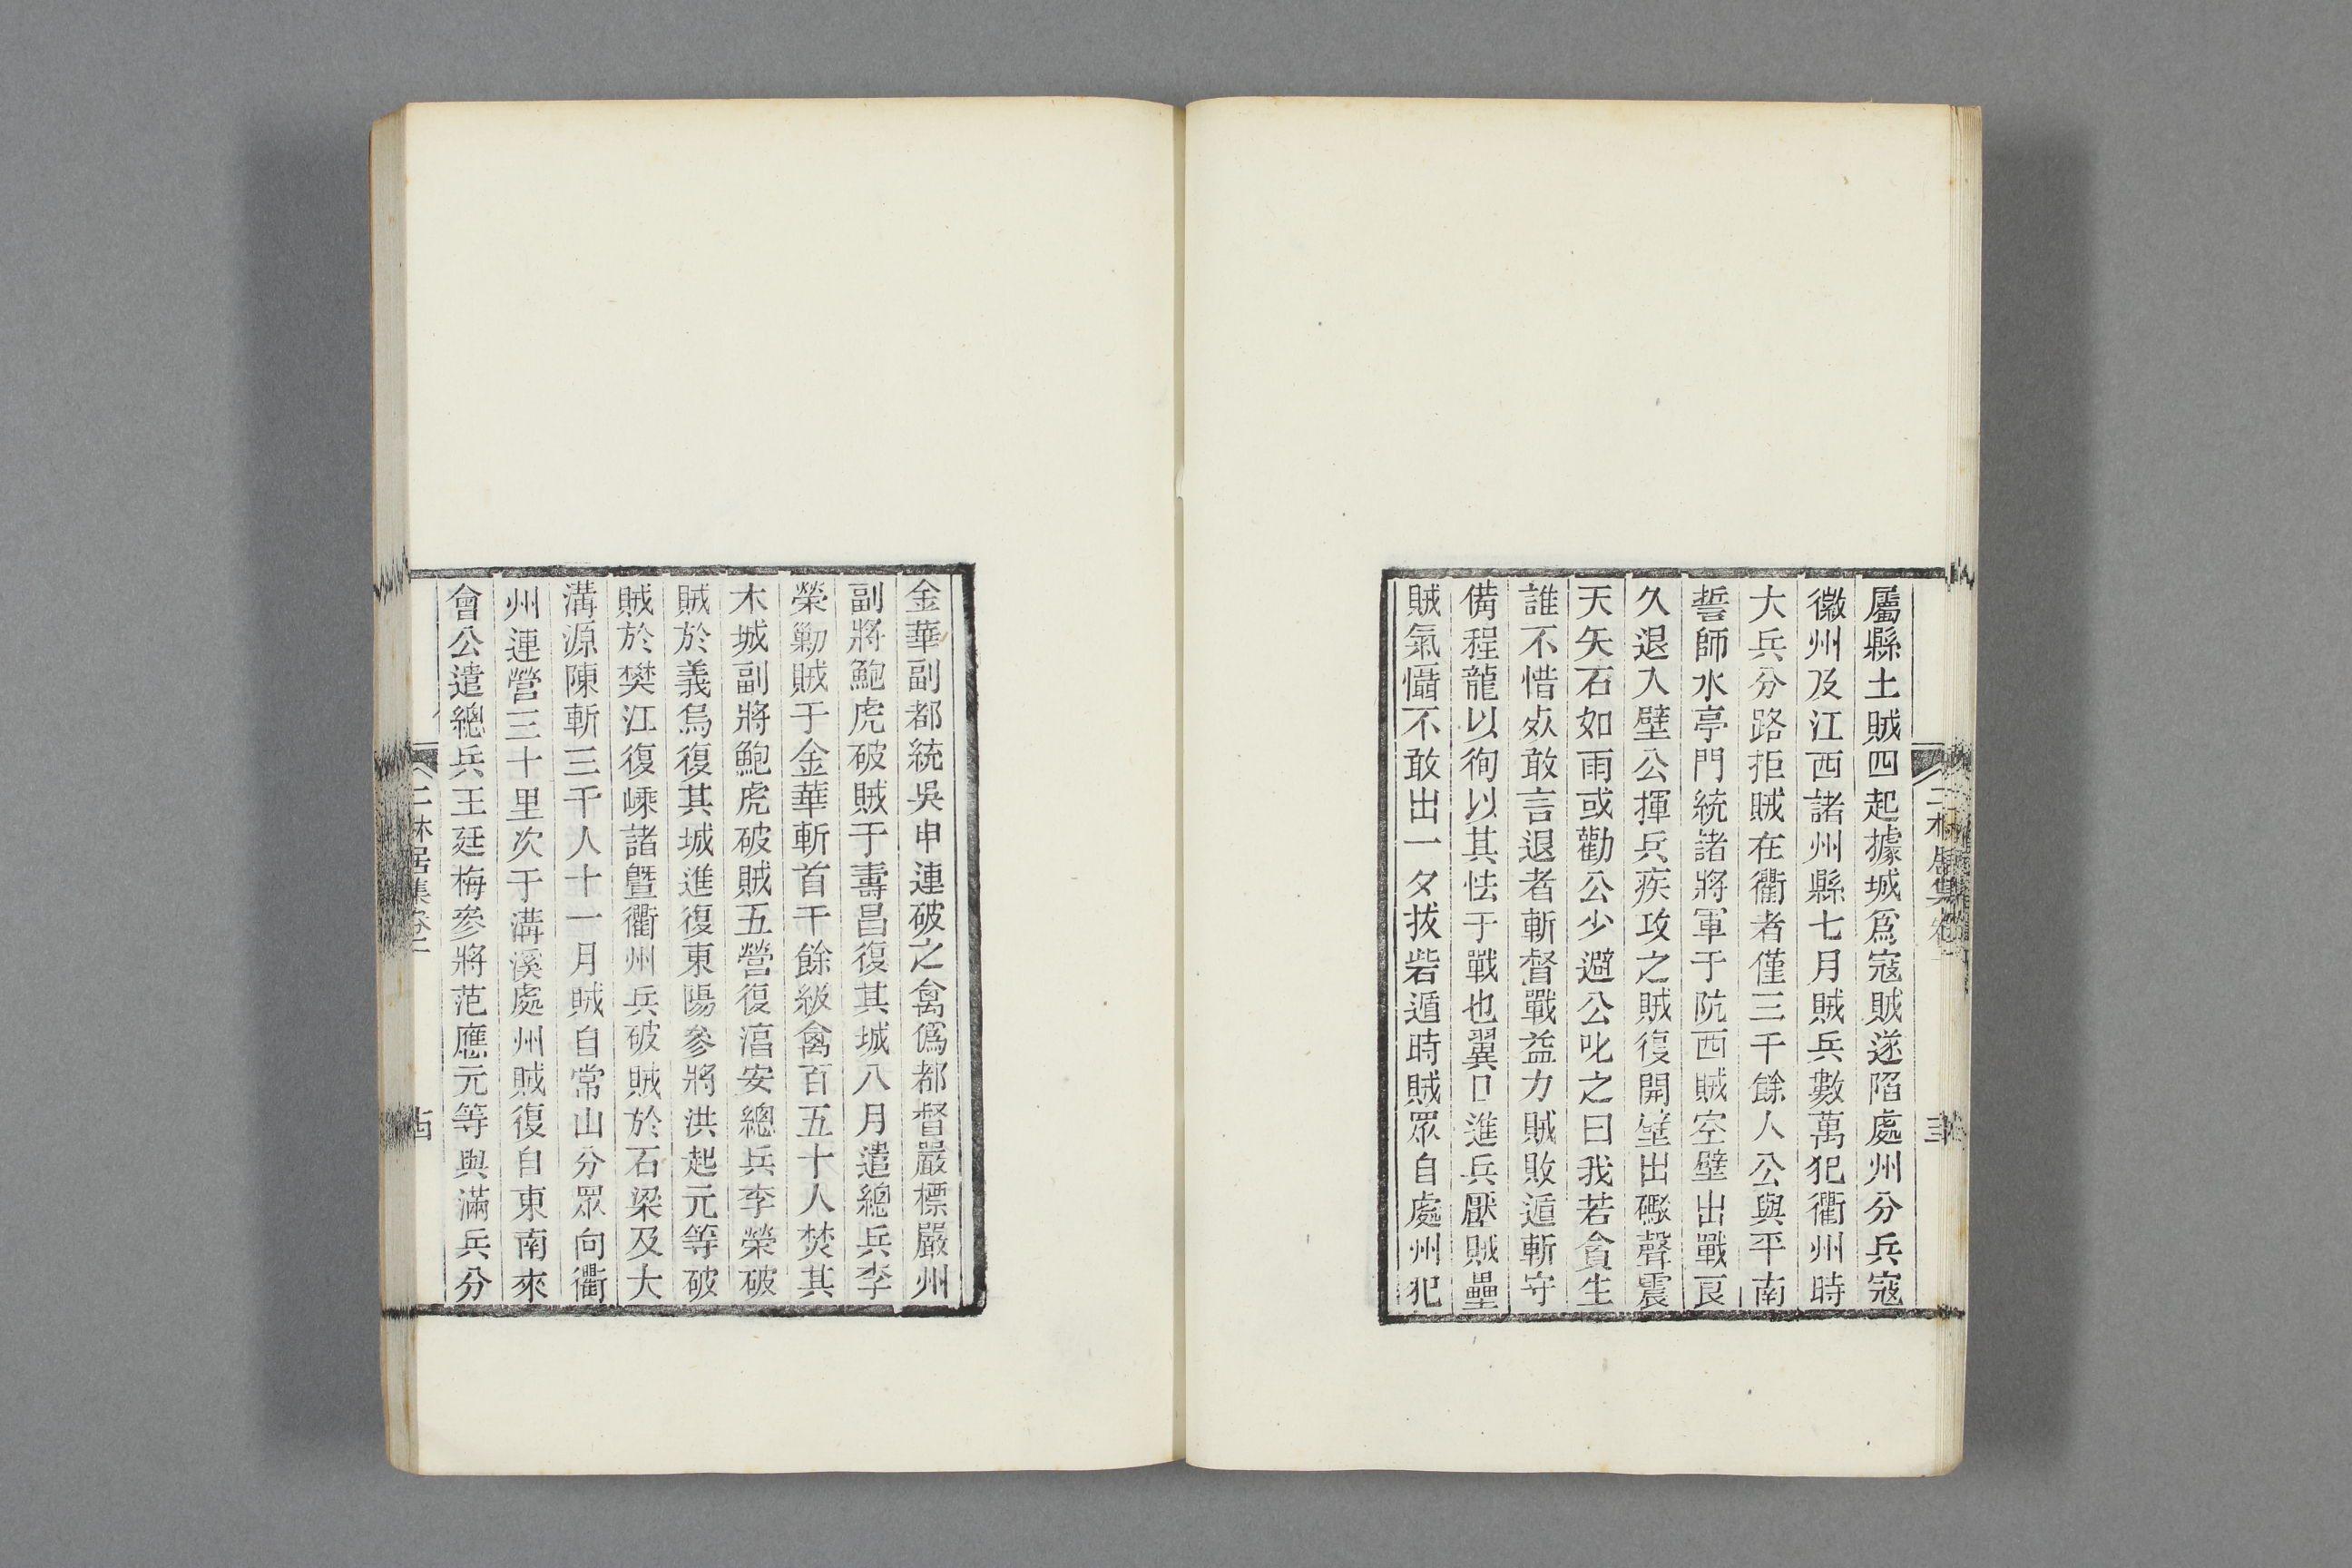 屬縣土賊四起據城爲寇賊遂陷處州分兵寇
徽州及江西諸州縣七月賊兵數萬犯衢州時
大兵分路拒賊在衢者僅三千餘人公與平南
誓師水亭門統諸將軍于阬西賊空壁出戰良
久退入壁公揮兵疾攻之賊復開壁出礮聲震
天矢石如雨或勸公少避公叱之曰我若貪生
誰不惜死敢言退者斬督戰益力賊敗遁斬守
備程龍以徇以其怯于戰也翼日進兵壓賊壘
賊氣懾不敢出一夕拔砦遁時賊眾自處州犯
金華副都統吳申連破之禽僞都督嚴標嚴州
副將鮑虎破賊于壽昌復其城八月遣總兵李
榮勦賊于金華斬首千餘級禽百五十人焚其
木城副將鮑虎破賊五營復湻安總兵李榮破
賊於義烏復其城進復東陽參將洪起元等破
賊於樊江復嵊諸曁衢州兵破賊於石梁及大
溝源陳斬三千人十一月賊自常山分眾向衢
州連營三十里次于溝溪處州賊復自東南來
會公遣總兵王廷梅參將范應元等與滿兵分
二林居集卷二